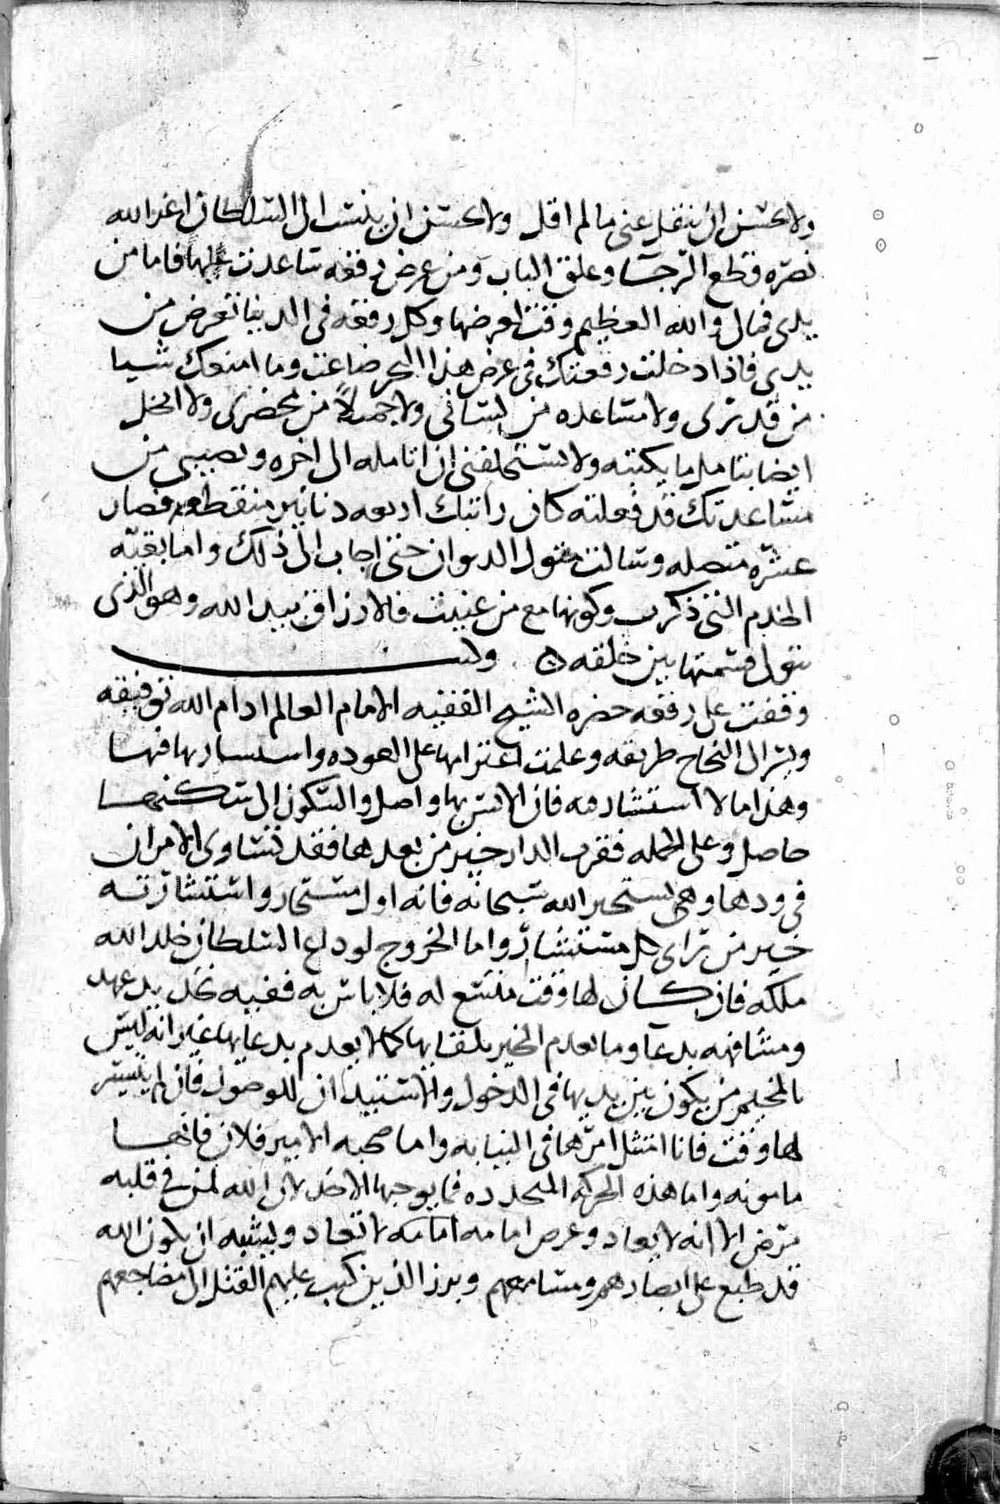 ولا يحسن ان ينقل عنى ما لم اقل ولا يحسن ان ينسب الى السلطان اعز الله
نصره قطع الرجا وغلق الباب ومن عرض رقعه ساعدت عليها فاما من
يدى فمال والله العظيم وقت لعرضها وكل رقعه فى الدنيا تعرض من
يدى فاذا دخلت رقعتك فى عرض هذا البحر ضاعت وما امنعك شيا
من قدرتى ولا مساعده من لسانى ولا جميلا من محضرى ولا ابخل
ايضا بتامل ما يكتبه ولا تستحلفنى ان اتامله الى اخره ونصيبى من
مساعدتك قد فعلته كان راتبك اربعه دنانير منقطعه فصار
عشره متصله وسالت متولى الديوان حتى اجاب الى ذلك واما بقيه
الخدم التى ذكرت وكونها مع من عنيت فالارزاق بيد الله وهو الذى
يتولى قسمتها بين خلقه وكتب
وقفت على رقعه حضره الشيخ الفقيه الامام العالم ادام الله توفيقه
ويسر الى النجاح طريقه وعلمت اعتزامها على العوده واستشارتها فيها
وهذا مما لا استشار فيه فان الانس بها واصل والسكون الى سكنها
حاصل وعلى الجمله فقرب الدار خير من بعدها فقد تساوى الامران
فى ودها وهى تستخير الله سبحانه فانه اول مستخار واستشارته
خير من راى كل مستشار واما الخروج لوداع السلطان خلد الله
ملكه فان كان لها وقت متسع له فلا باس به ففيه تجديد عهد
ومشافهه بدعا وما تعدم الخير بلقايها كما لا يعدم بدعايها غير انه ليس
بالمخيم من يكون بين يديها فى الدخول والاستيذان للوصول فان لم يتيسر
لها وقت فانا امتثل امرها فى النيابه واما صحبه الامير فلان فانها
مامونه واما هذه الحركه المتجدده فما يوجبها الاخذلان الله لمن فى قلبه
مرض الا انه لا يعاد وعرض امامه لا تعاد ويشبه ان يكون الله
قد طبع على ابصارهم ومسامعهم وبرز الذين كتب عليهم القتل الى مضاجعهم